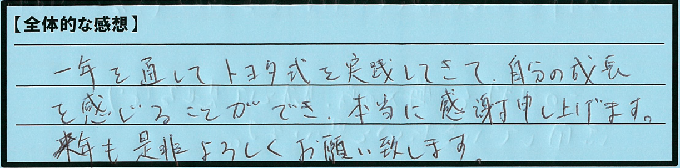 【全体的な感想】
一年を通してトヨタ式を実践してきて、自分の成長
を感じることができ、本当に感謝申し上げます。
来年も是非よろしくお願い致します。